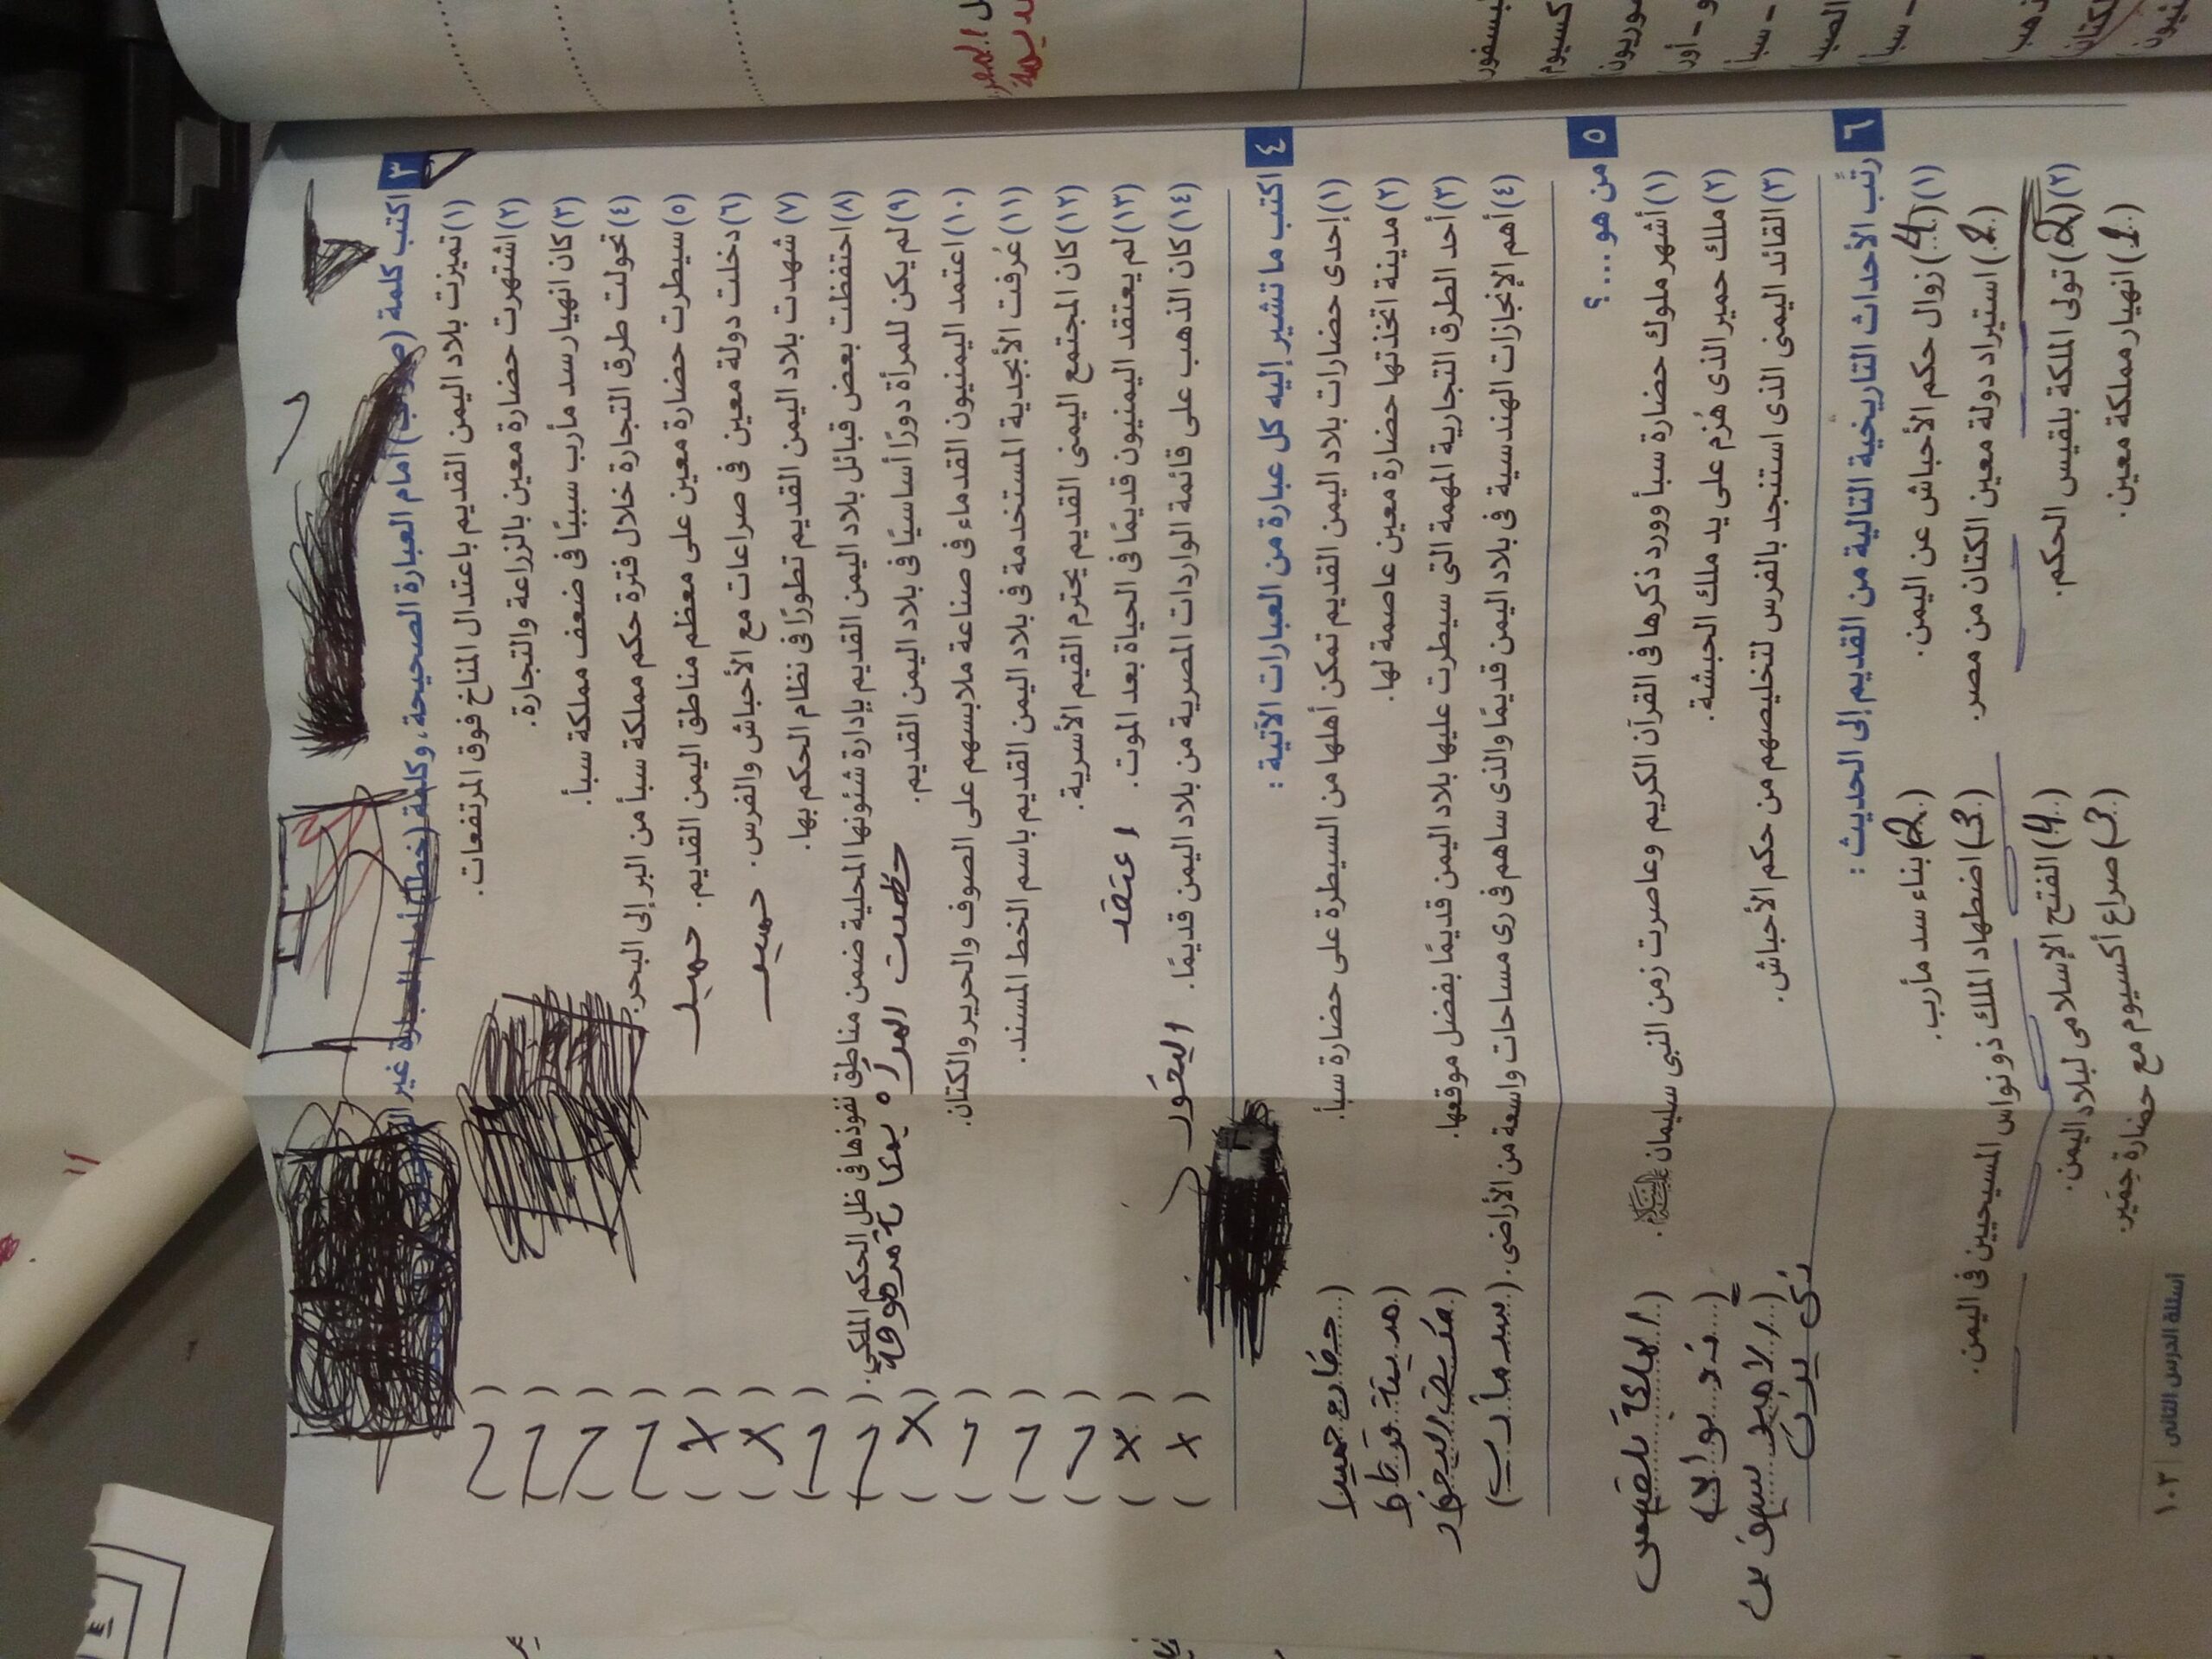 ٣ اكتب كلمة (صواب) أمام العبارة الصحيحة، وكلمة (خطأ) أمام العبارة غير
(١) تميزت بلاد اليمن القديم باعتدال المناخ فوق المرتفعات. ( )
(٢) اشتهرت حضارة معين بالزراعة والتجارة. ( )
(٣) كان انهيار سد مأرب سببًا فى ضعف مملكة سبأ. ( )
(٤) تحولت طرق التجارة خلال فترة حكم مملكة سبأ من البر إلى البحر. ( )
(٥) سيطرت حضارة معين على معظم مناطق اليمن القديم. حمير ( X )
(٦) دخلت دولة معين فى صراعات مع الأحباش والفرس. حمير ( X )
(٧) شهدت بلاد اليمن القديم تطورًا فى نظام الحكم بها. ( )
(٨) احتفظت بعض قبائل بلاد اليمن القديم بإدارة شئونها المحلية ضمن مناطق نفوذها فى ظل الحكم الملكى. ( )
(٩) لم يكن للمرأة دورًا أساسيًا فى بلاد اليمن القديم. ( X )
المرأة مكانة مرموقة
(١٠) اعتمد اليمنيون القدماء فى صناعة ملابسهم على الصوف والحرير والكتان. ( )
(١١) عُرفت الأبجدية المستخدمة فى بلاد اليمن القديم باسم الخط المسند. ( )
(١٢) كان المجتمع اليمنى القديم يحترم القيم الأسرية. ( )
(١٣) لم يعتقد اليمنيون قديمًا فى الحياة بعد الموت. اعتقد ( X )
(١٤) كان الذهب على قائمة الواردات المصرية من بلاد اليمن قديمًا. البخور ( X )
٤ اكتب ما تشير إليه كل عبارة من العبارات الآتية :
(١) إحدى حضارات بلاد اليمن القديم تمكن أهلها من السيطرة على حضارة سبأ. (حضارة حمير)
(٢) مدينة اتخذتها حضارة معين عاصمة لها. (مدينة قرناو)
(٣) أحد الطرق التجارية المهمة التى سيطرت عليها بلاد اليمن قديمًا بفضل موقعها. ( البخور)
(٤) أهم الإنجازات الهندسية فى بلاد اليمن قديمًا والذى ساهم فى رى مساحات واسعة من الأراضى. (سد مأرب)
٥ من هو ... ؟
(١) أشهر ملوك حضارة سبأ وورد ذكرها فى القرآن الكريم وعاصرت زمن النبى سليمان. (الملكة بلقيس)
(٢) ملك حمير الذى هُزم على يد ملك الحبشة. (ذو نواس)
(٣) القائد اليمنى الذى استنجد بالفرس لتخليصهم من حكم الأحباش. (الأمير سيف بن
ذى يزن
٦ رتب الأحداث التاريخية التالية من القديم إلى الحديث :
(١) (4) زوال حكم الأحباش عن اليمن. (2) بناء سد مأرب.
(1) استيراد دولة معين الكتان من مصر. (3) اضطهاد الملك ذو نواس المسيحيين فى اليمن.
(٢) (2) تولى الملكة بلقيس الحكم. (4) الفتح الإسلامى لبلاد اليمن.
(1) انهيار مملكة معين. (3) صراع أكسيوم مع حضارة حِمْير.
أسئلة الدرس الثانى | ١٠٣